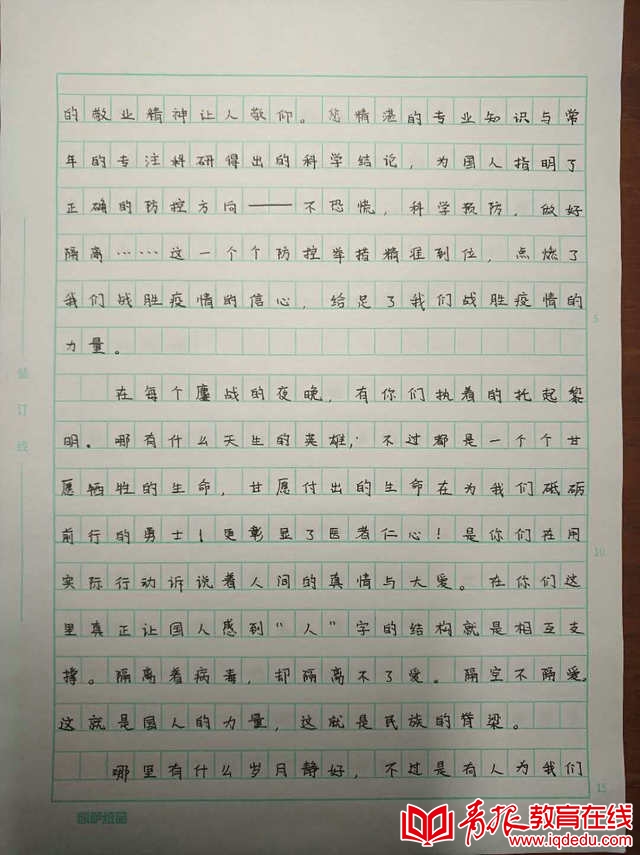 的敬业精神让人敬仰。您精湛的专业知识与常
年的专注科研得出的科学结论，为国人指明了
正确的防控方向——不恐慌，科学预防，做好
隔离……这一个个防控举措精准到位，点燃了
我们战胜疫情的信心，给足了我们战胜疫情的
力量。
在每个鏖战的夜晚，有你们执着的托起黎
明。哪有什么天生的英雄，不过都是一个个甘
愿牺牲的生命，甘愿付出的生命在为我们砥砺
前行的勇士！更彰显了医者仁心！是你们在用
实际行动诉说着人间的真情与大爱。在你们这
里真正让国人感到“人”字的结构就是相互支
撑。隔离着病毒，却隔离不了爱。隔空不隔爱。
这就是国人的力量，这就是民族的脊梁。
哪里有什么岁月静好，不过是有人为我们
装订线
5
10
15
青报教育在线
www.iqdedu.com